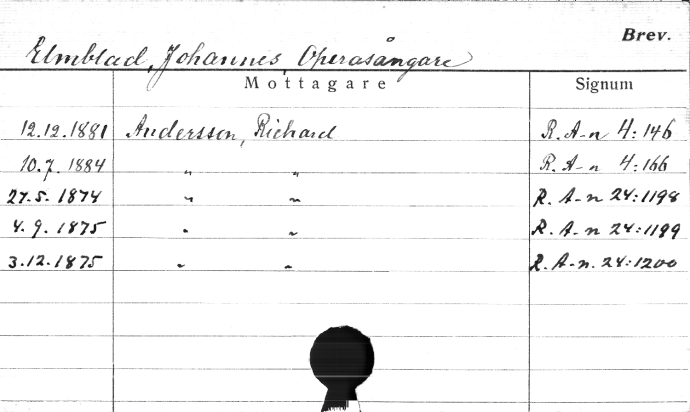 Brev.
Elmblad, Johannes, Operasångare
Mottagare Signum
12.12.1881 Andersson, Richard R. A-n 4:146
10.7.1884 " " R. A-n 4:166
27.5.1874 " " R. A-n 24:1198
4.9.1875 " " R. A-n 24:1199
3.12.1875 " " R. A-n. 24:1200